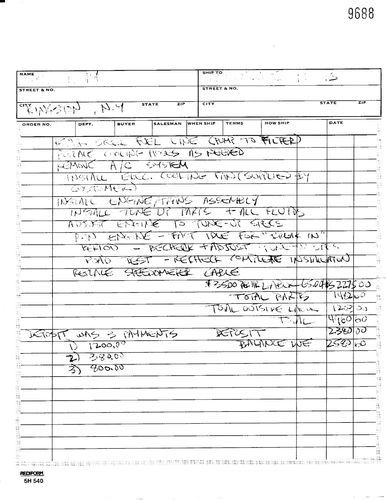 9688
NAME
SHIP TO
STREET & NO.
STREET & NO.
CITY KINGSTON, N.Y STATE ZIP
CITY STATE ZIP
ORDER NO. DEPT. BUYER SALESMAN WHEN SHIP TERMS HOW SHIP DATE
FUEL LINE (PUMP TO FILTER)
COOLING HOSES AS NEEDED
REMOVE A/C SYSTEM
INSTALL ELEC. COOLING FAN (SUPPLIED BY
CUSTOMER)
INSTALL ENGINE/TRANS ASSEMBLY
INSTALL TUNE UP PARTS + ALL FLUIDS
ADJUST ENGINE TO TUNE-UP SPECS
RUN ENGINE - FAST IDLE FOR "BREAK IN"
PERIOD - RECHECK + ADJUST TUNE-UP SPECS
ROAD TEST - RECHECK COMPLETE INSTALLATION
REPLACE SPEEDOMETER CABLE
TOTAL PARTS
TOTAL OUTSIDE LABOR
TOTAL
DEPOSIT WAS 3 PAYMENTS DEPOSIT 2380 00
1) 1200.00 BALANCE DUE 2580 00
2) 380.00
3) 800.00
REDIFORM
5H 540